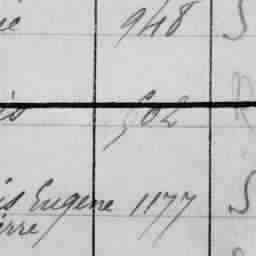 ie 948 S
is 502 R
is Eugene 1177 S
ierre